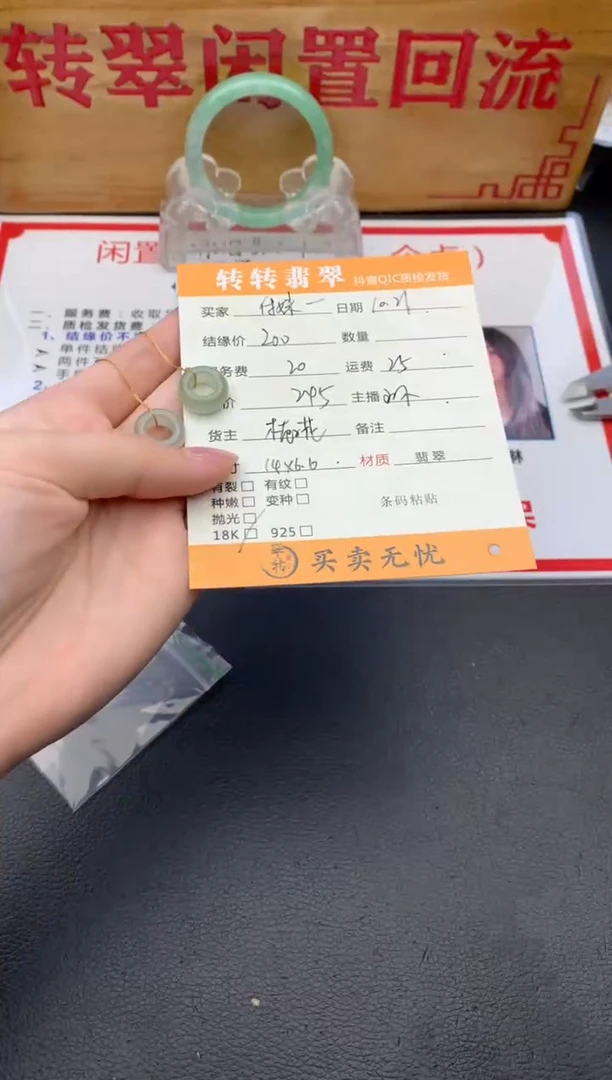 转翠闲置回流
闲置
转转翡翠 抖音QIC质检发货
买家 日期 10.21
结缘价 200 数量
务费 20 运费 25
价 245 主播
货主 梅花 备注
寸 14x6.6 材质 翡翠
有裂□ 有纹□
种嫩□ 变种□
抛光□ 条码粘贴
18K□ 925□
买卖无忧
一、服务费：收取
二、质检发货费
1、结缘价不
单件结
两件
手
2